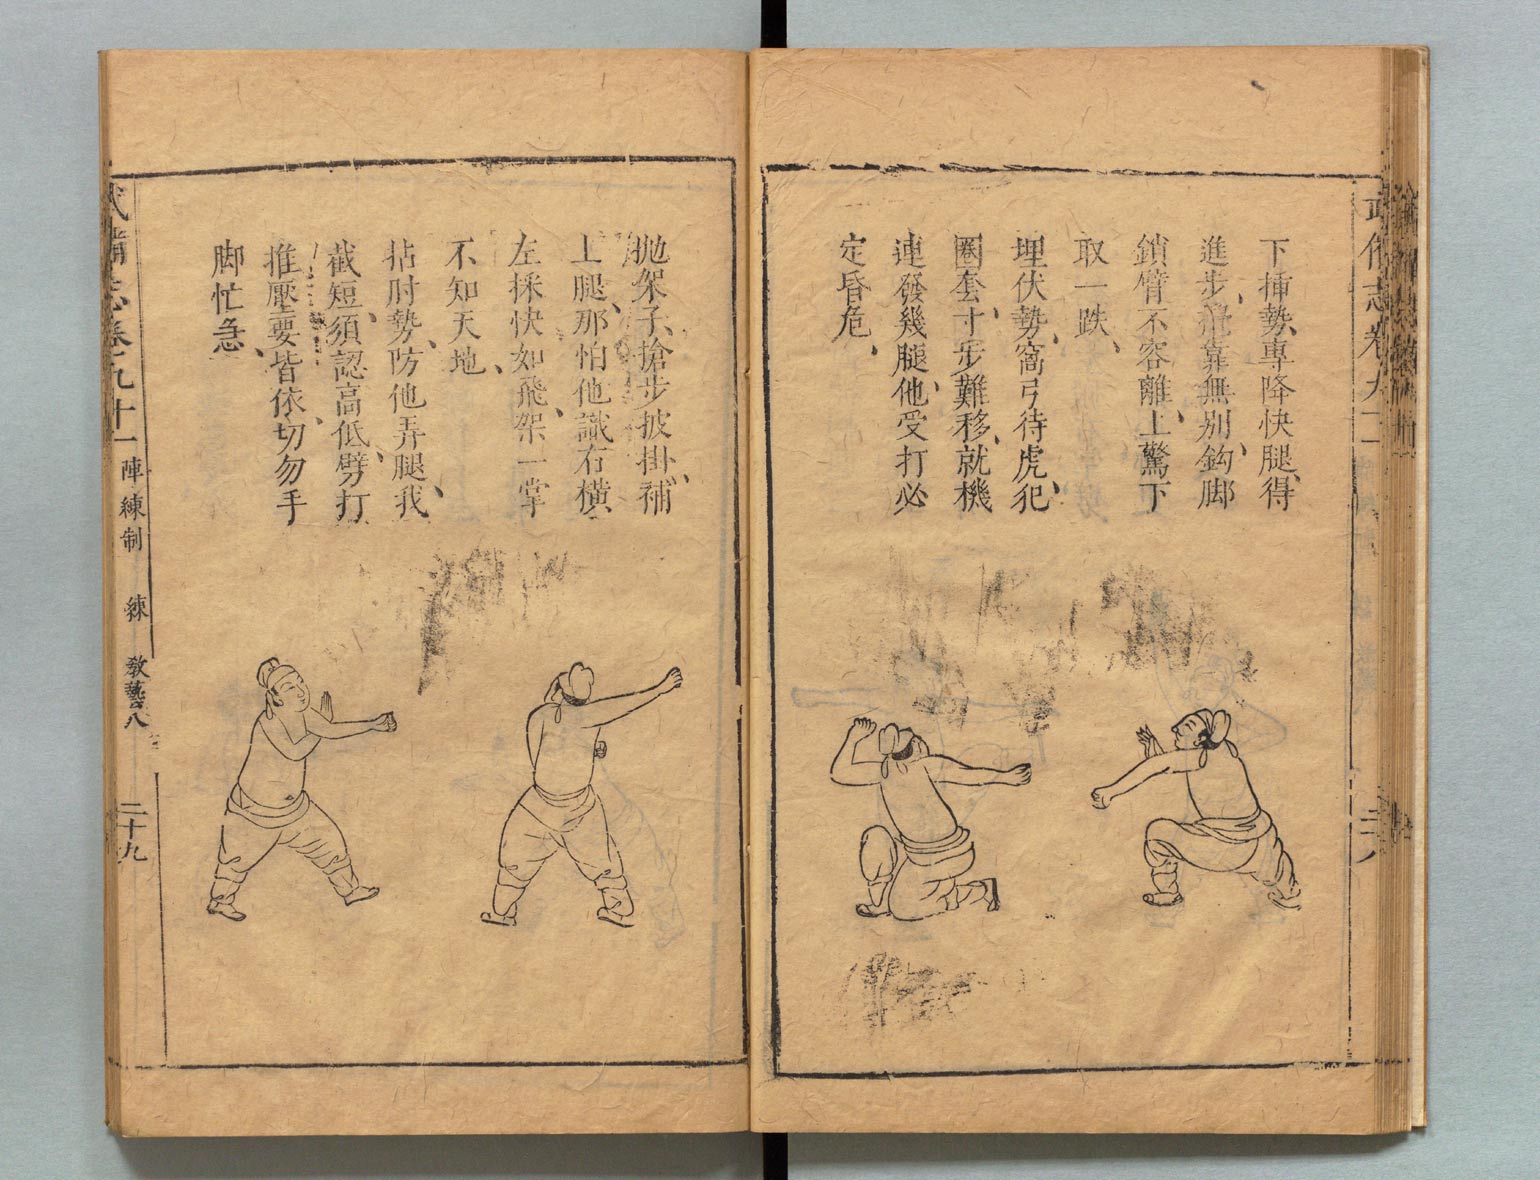 武備志卷九十一
下揷勢、專降快腿、得
進步、攪靠無别、鈎脚
鎖臂不容離、上驚下
取一跌、
埋伏勢、窩弓待虎、犯
圈套、寸步難移、就機
連發幾腿、他受打必
定昏危、
抛架子、搶步披掛、補
上腿、那怕他識、右橫
左採快如飛、架一掌
不知天地、
拈肘勢、防他弄腿、我
截短、須認高低、劈打
推壓要皆依、切勿手
脚忙急、
武備志卷九十一
陣練制
練
教藝八
二十九